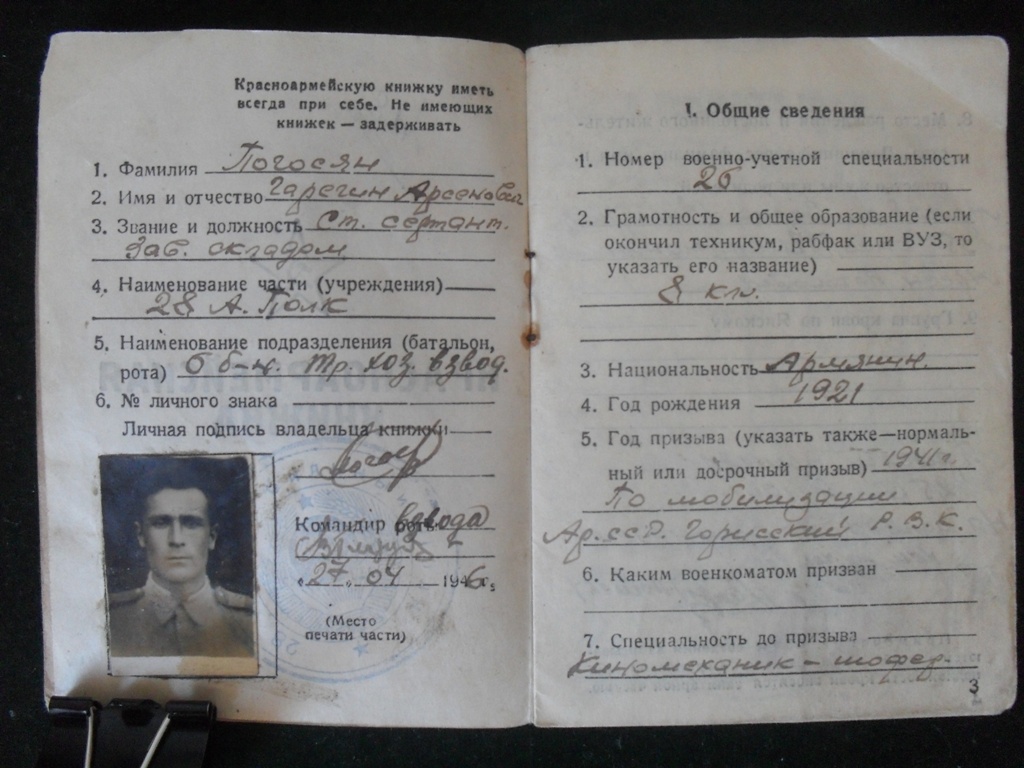 Красноармейскую книжку иметь
всегда при себе. Не имеющих
книжек — задерживать
1. Фамилия Погосян
2. Имя и отчество Гарегин Арсенович
3. Звание и должность Ст. сержант.
Зав. складом
4. Наименование части (учреждения)
28 А. Полк
5. Наименование подразделения (батальон,
рота) б-н. тр. хоз. взвод.
6. № личного знака
Личная подпись владельца книжки
Командир роты взвода
„27„ 04 1946г.
(Место
печати части)
1. Общие сведения
1. Номер военно-учетной специальности
26
2. Грамотность и общее образование (если
окончил техникум, рабфак или ВУЗ, то
указать его название)
8 кл.
3. Национальность Армянин.
4. Год рождения 1921
5. Год призыва (указать также—нормаль-
ный или досрочный призыв) 1941 г.
По мобилизации
Ар.ССР. Горисский Р. В. К.
6. Каким военкоматом призван
7. Специальность до призыва
Киномеханик – шофер.
3